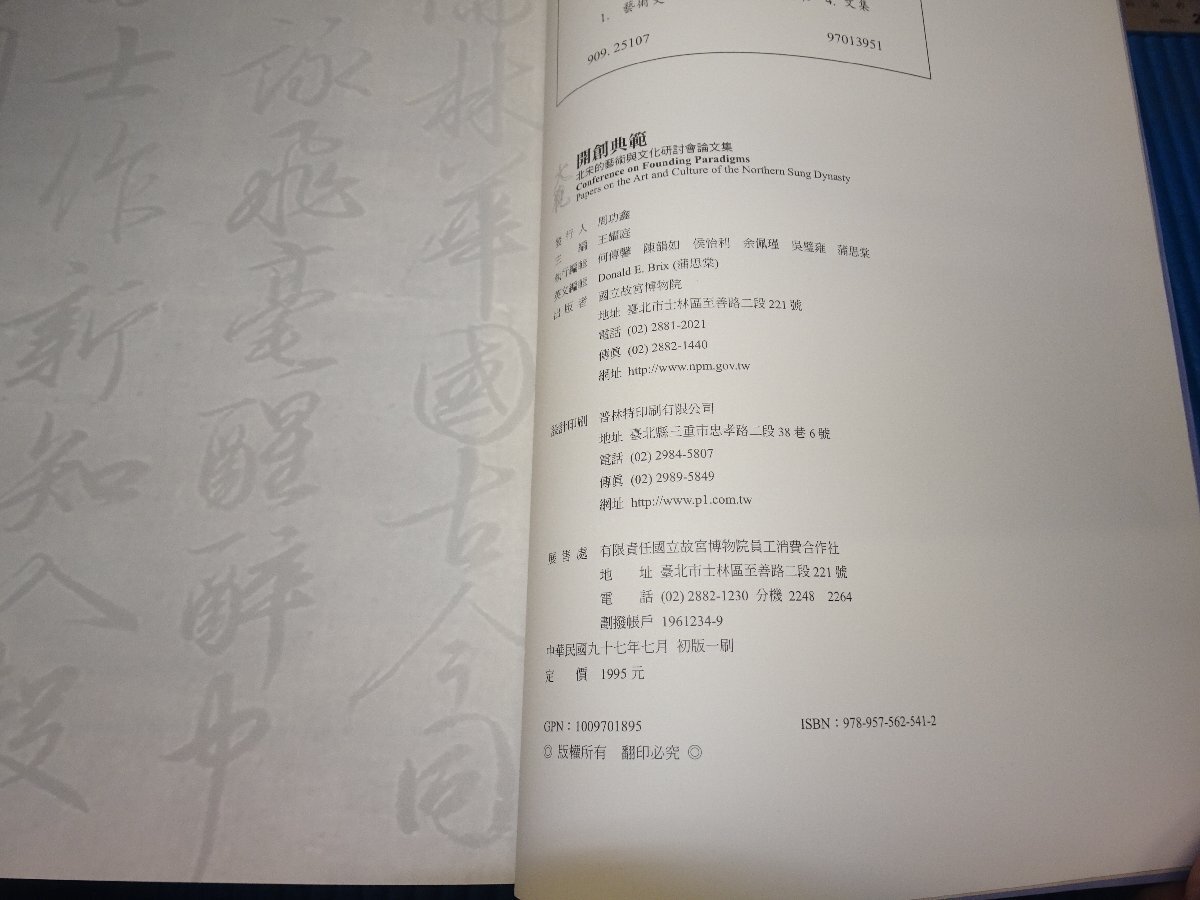 儒林華國古今同
詠飛毫醒醉中
士作新知入彀
1. 藝術史 4. 文集
909. 25107 97013951
開創典範
北宋的藝術與文化研討會論文集
Conference on Founding Paradigms
Papers on the Art and Culture of the Northern Sung Dynasty
發行人 周功鑫
主編 王耀庭
執行編輯 何傳馨 陳韻如 侯怡利 余佩瑾 吳璧雍 蒲思棠
英文編輯 Donald E. Brix (蒲思棠)
出版者 國立故宮博物院
地址 臺北市士林區至善路二段 221 號
電話 (02) 2881-2021
傳真 (02) 2882-1440
網址 http://www.npm.gov.tw
設計印刷 普林特印刷有限公司
地址 臺北縣三重市忠孝路二段 38 巷 6 號
電話 (02) 2984-5807
傳真 (02) 2989-5849
網址 http://www.p1.com.tw
展售處 有限責任國立故宮博物院員工消費合作社
地 址 臺北市士林區至善路二段 221 號
電 話 (02) 2882-1230 分機 2248 2264
劃撥帳戶 1961234-9
中華民國九十七年七月 初版一刷
定 價 1995 元
GPN：1009701895 ISBN：978-957-562-541-2
◎ 版權所有 翻印必究 ◎